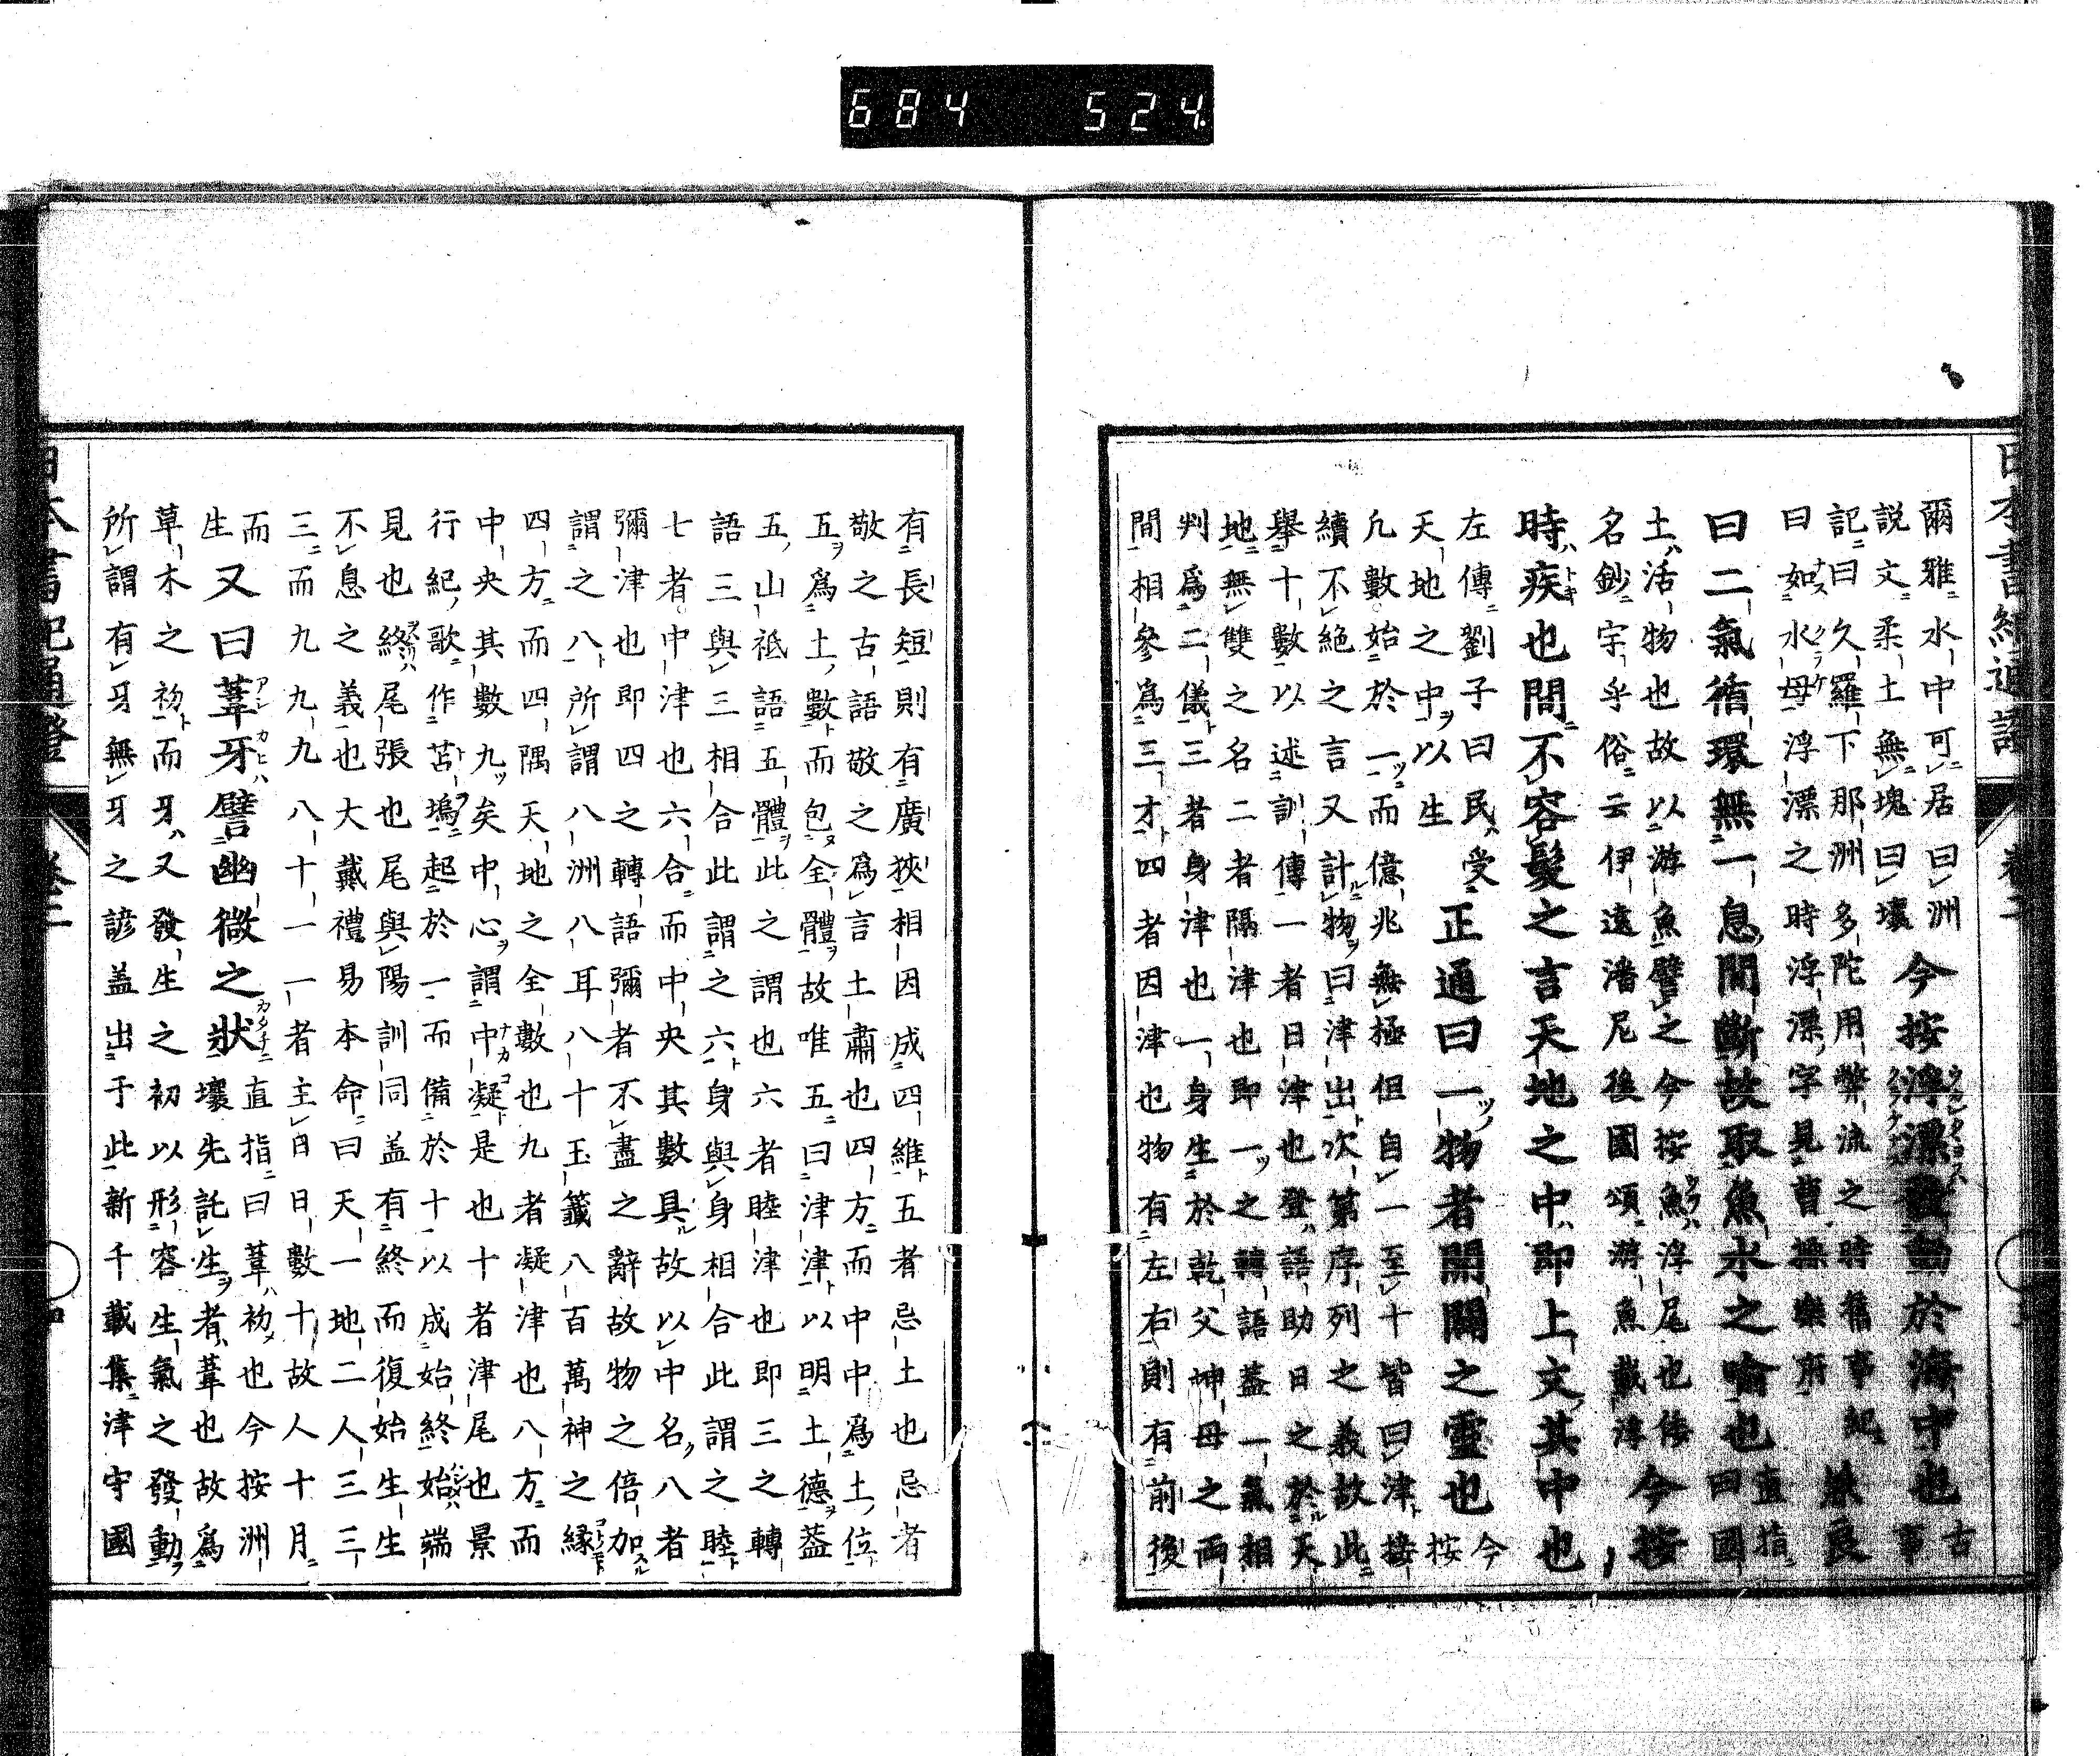 684 524
爾雅水中可居曰洲
説文柔土無塊曰壤
今按浮漂動於海中也
古事
記曰久羅下那洲多陀用弊流之時舊事紀
曰如水母浮漂之時浮漂字見曹操樂府
良
曰二氣循環無一息間斷故取魚水之喻也
直指
曰國
土活物也故以游魚譬之今按鮒浮尾也倭
名鈔宇乎俗云伊遠潘尼後國頌游魚戴浮
今按
時疾也間不容髮之言天地之中即上文其中也
左傳劉子曰民受
天地之中以生
正通曰一物者開闢之靈也
今按
凡數始於一而億兆無極但自一至十皆曰津接
續不絶之言又計物曰津出次第序列之義故此
擧十數以述訓傳一者日津也登語助日之於天
地無雙之名二者隔津也即一之轉語蓋一氣相
判爲二儀三者身津也一身生於乾父坤母之兩
間相參爲三才四者因津也物有左右則有前後
有長短則有廣狹相因成四維五者忌土也忌者
敬之古語敬之爲言土肅也四方而中中爲土位
五爲土數而包全體故唯五曰津津以明土德蓋
五山祇語五體此之謂也六者睦津也即三之轉
語三與三相合此謂之六身與身相合此謂之睦
七者中津也六合而中央其數具故以中名八者
彌津也即四之轉語彌者不盡之辭故物之倍加
謂之八所謂八洲八耳八十玉籤八百萬神之緣
四方而四隅天地之全數也九者凝津也八方而
中央其數九矣中心謂中凝是也十者津尾也景
行紀歌作苫塢起於一而備於十以成始終始端
見也終尾張也尾與陽訓同蓋有終而復始生生
不息之義也大戴禮易本命曰天一地二人三三
三而九九九八十一一者主日日數十故人十月
而
生
又曰葦牙譬幽微之狀
直指曰葦初也今按洲
壤先託生者葦也故爲
草木之初而牙又發生之初以形容生氣之發動
所謂有牙無牙之諺蓋出于此新千載集津守國